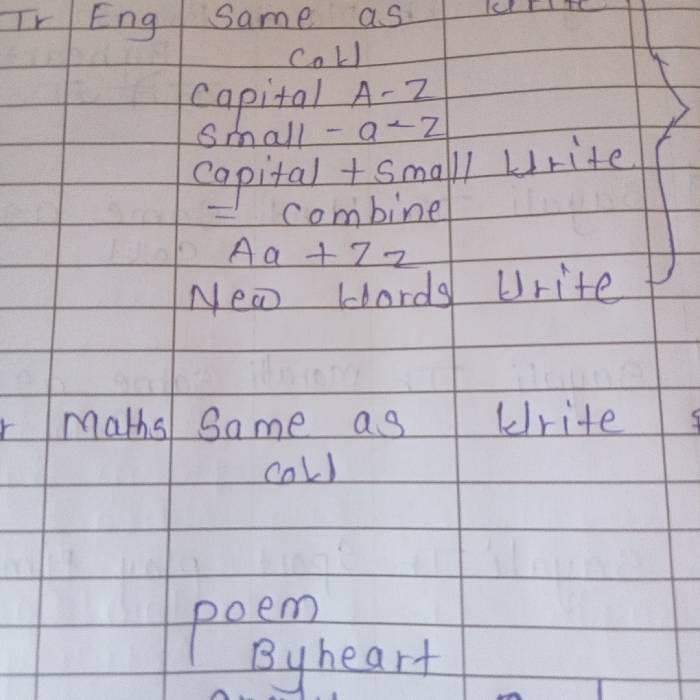 Tr Eng Same as Write
Call
Capital A-Z
Small - a-z
Capital + Small Write
= Combine
Aa + Zz
New Words Write
Maths Same as Write
Call
Poem
Byheart